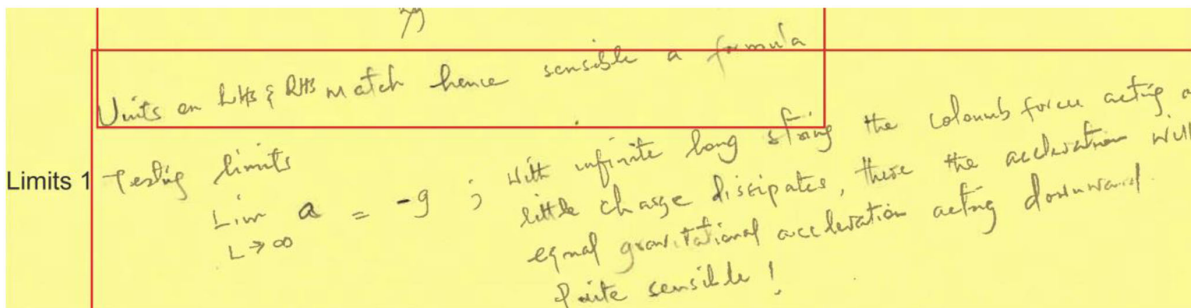 Units on LHS & RHS match hence sensible a formula
Limits 1
Testing limits
Lim a = -g ; With infinite long string the coloumb force acting
L→∞
little charge dissipates, there the accleration will
equal gravitational accleration acting downward.
Quite sensible!